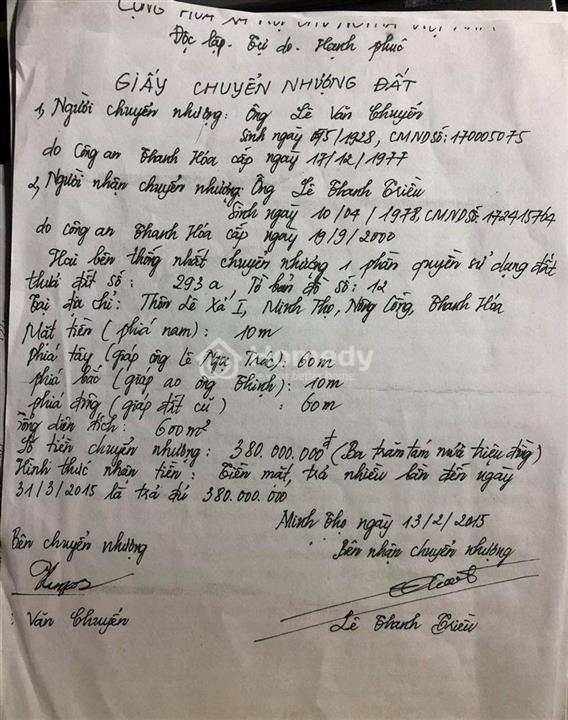 CỘNG HÒA XÃ HỘI CHỦ NGHĨA VIỆT NAM
Độc lập - Tự do - Hạnh phúc
GIẤY CHUYỂN NHƯỢNG ĐẤT
1, Người chuyển nhượng: Ông Lê Văn Chuyển
Sinh ngày 05/1928, CMND Số: 170005075
do Công an Thanh Hóa cấp ngày 17/12/1977
2, Người nhận chuyển nhượng: Ông Lê Thanh Triều
Sinh ngày 10/04/1978, CMND Số: 172415764
do công an Thanh Hóa cấp ngày 19/9/2000
Hai bên thống nhất chuyển nhượng 1 phần quyền sử dụng đất
thửa đất số: 293a, Tờ bản đồ số: 12
Tại địa chỉ: Thôn Lê Xá I, Minh Thọ, Nông Cống, Thanh Hóa
Mặt tiền (phía nam): 10m
phía tây (giáp ông Lê Ngọ Trác): 60m
phía bắc (giáp ao ông Thịnh): 10m
phía đông (giáp đất cũ) : 60m
Tổng diện tích: 600m²
Số tiền chuyển nhượng: 380.000.000đ (Ba trăm tám mươi triệu đồng)
Hình thức nhận tiền: Tiền mặt, trả nhiều lần đến ngày
31/3/2015 là trả đủ 380.000.000
Minh Thọ ngày 13/2/2015
Bên chuyển nhượng
Bên nhận chuyển nhượng
Văn Chuyển
Lê Thanh Triều
Homedy